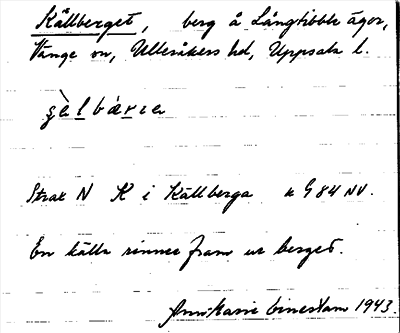 Källberget, berg å Långtibble ägor,
Vänge sn, Ulleråkers hd, Uppsala l.
Strax N K i Källberga k G 84 NV.
En källa rinner fram ur berget.
1943.